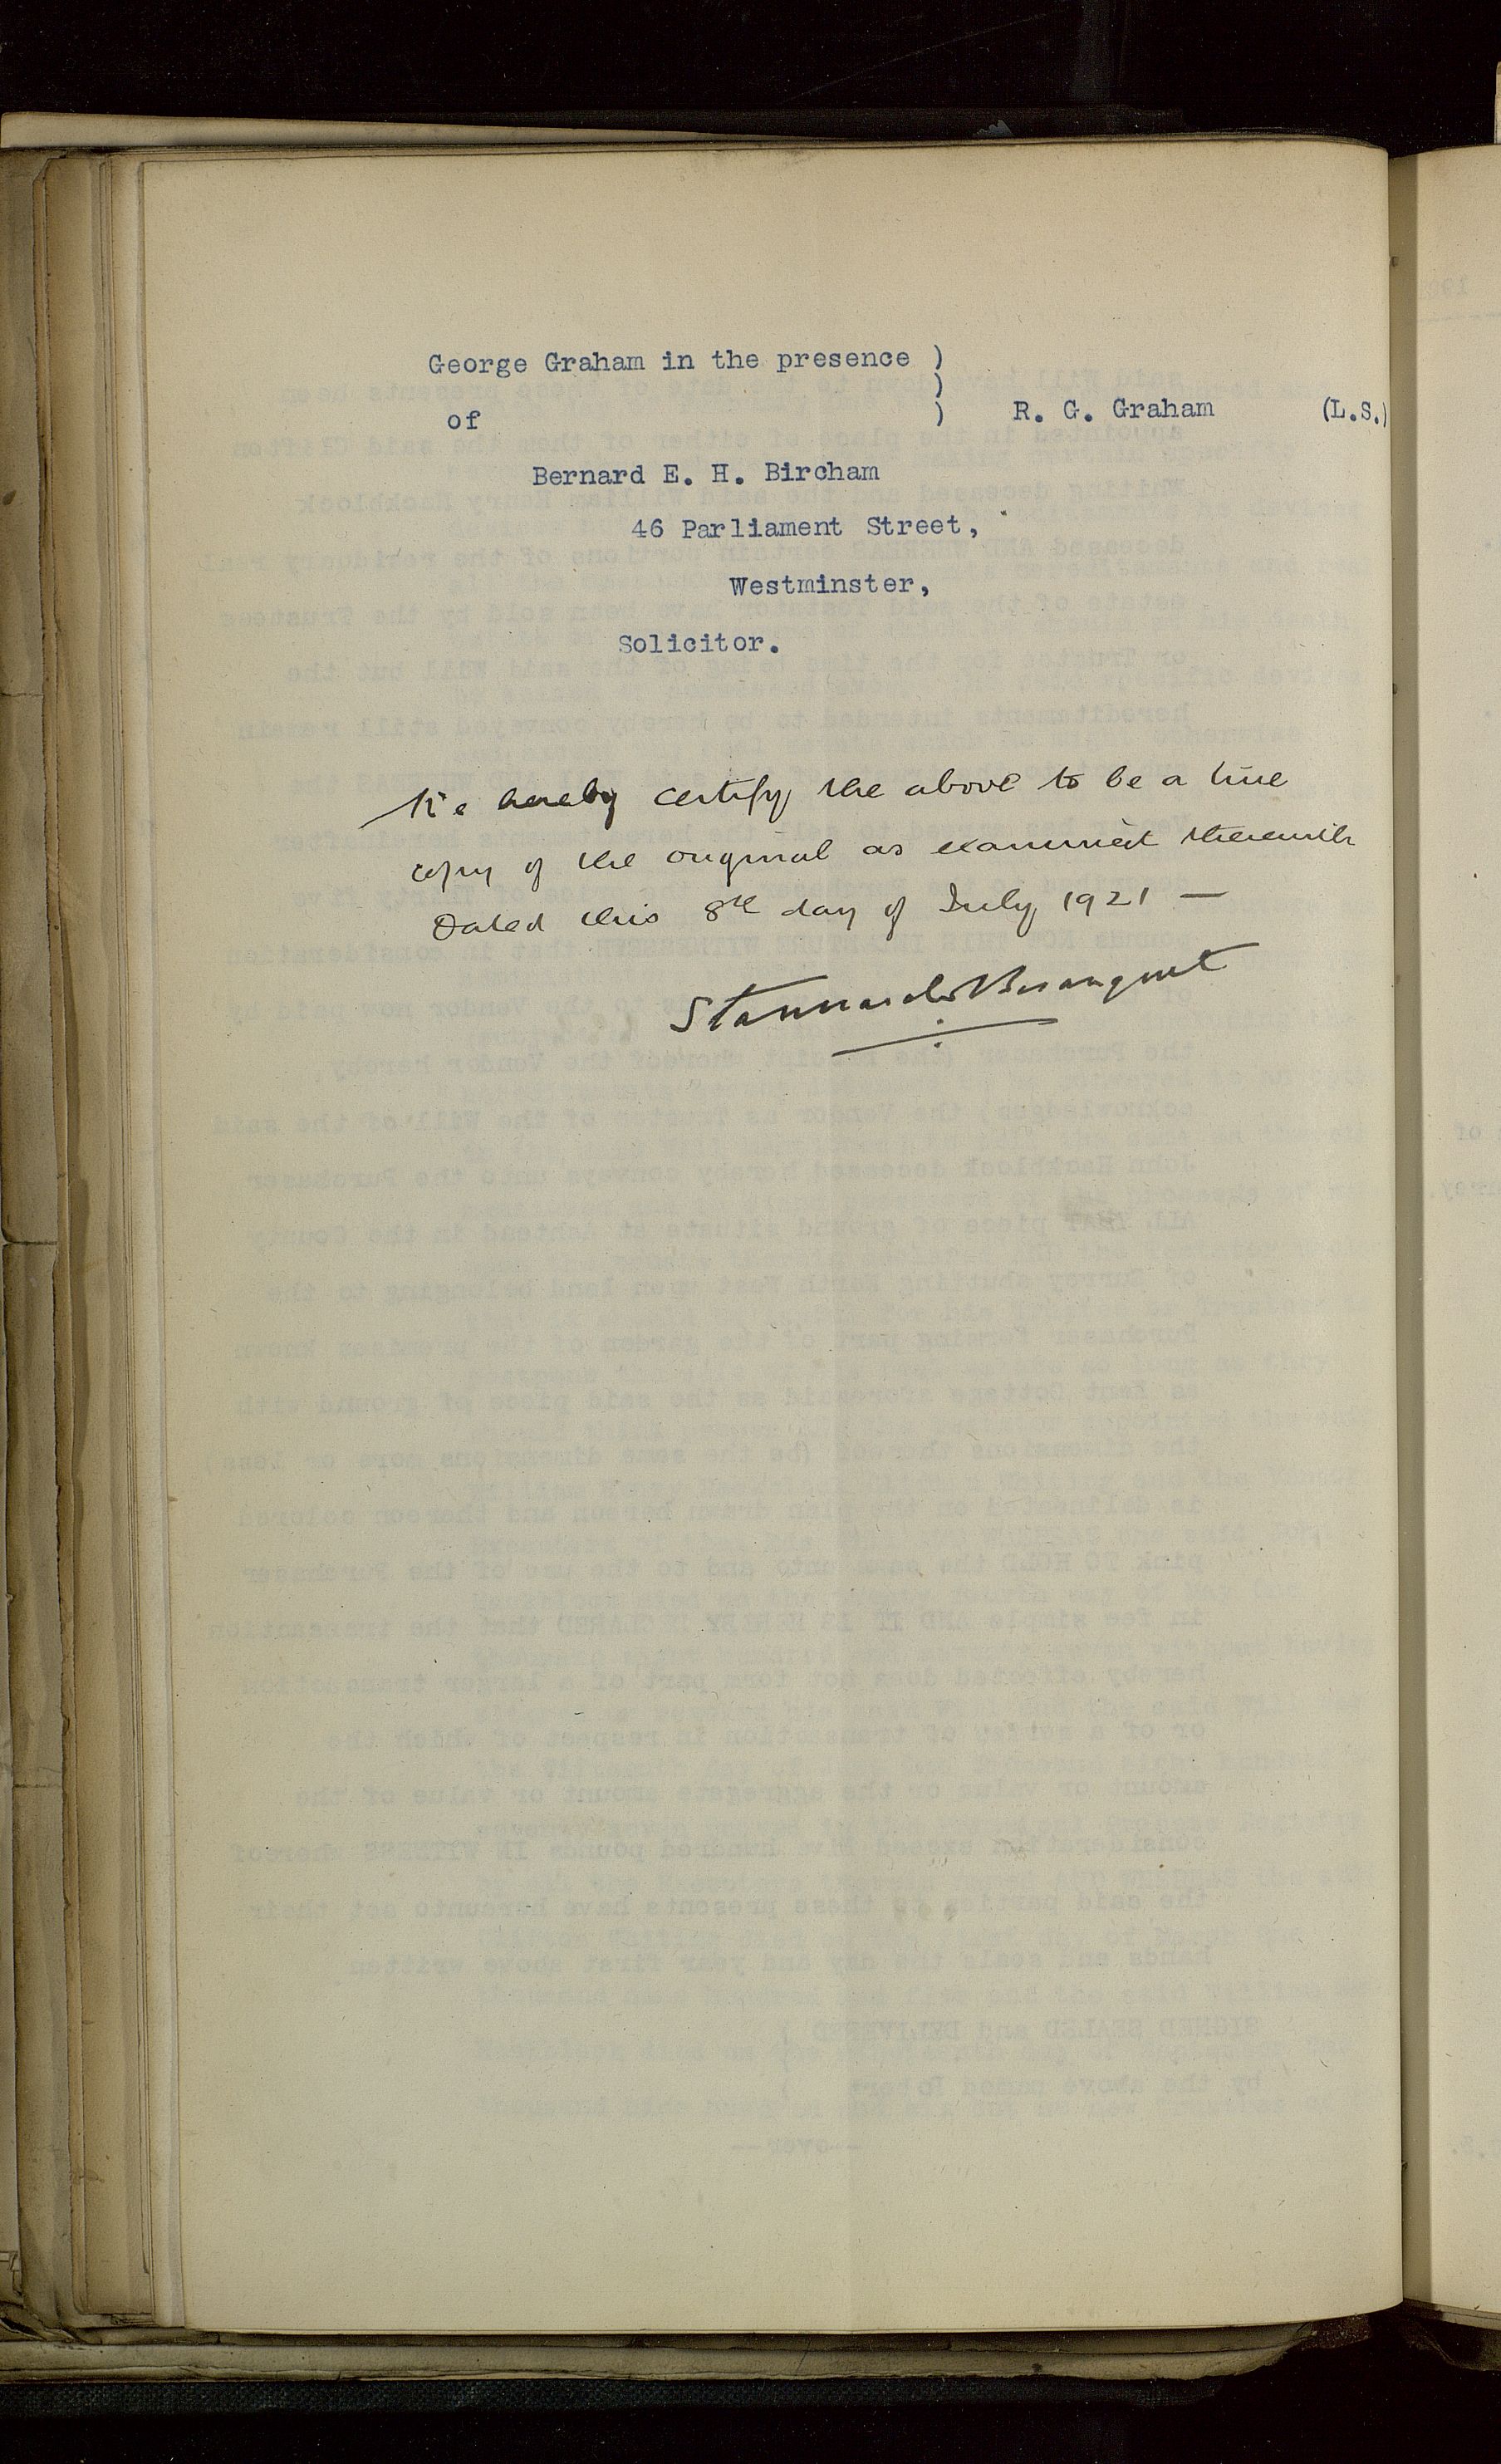 George Graham in the presence )
)
of ) R. G. Graham (L.S.)
Bernard E. H. Bircham
46 Parliament Street,
Westminster,
Solicitor.
We hereby certify the above to be a true
copy of the original as examined therewith
Dated this 8th day of July 1921 —
Stannard & Bosanquet